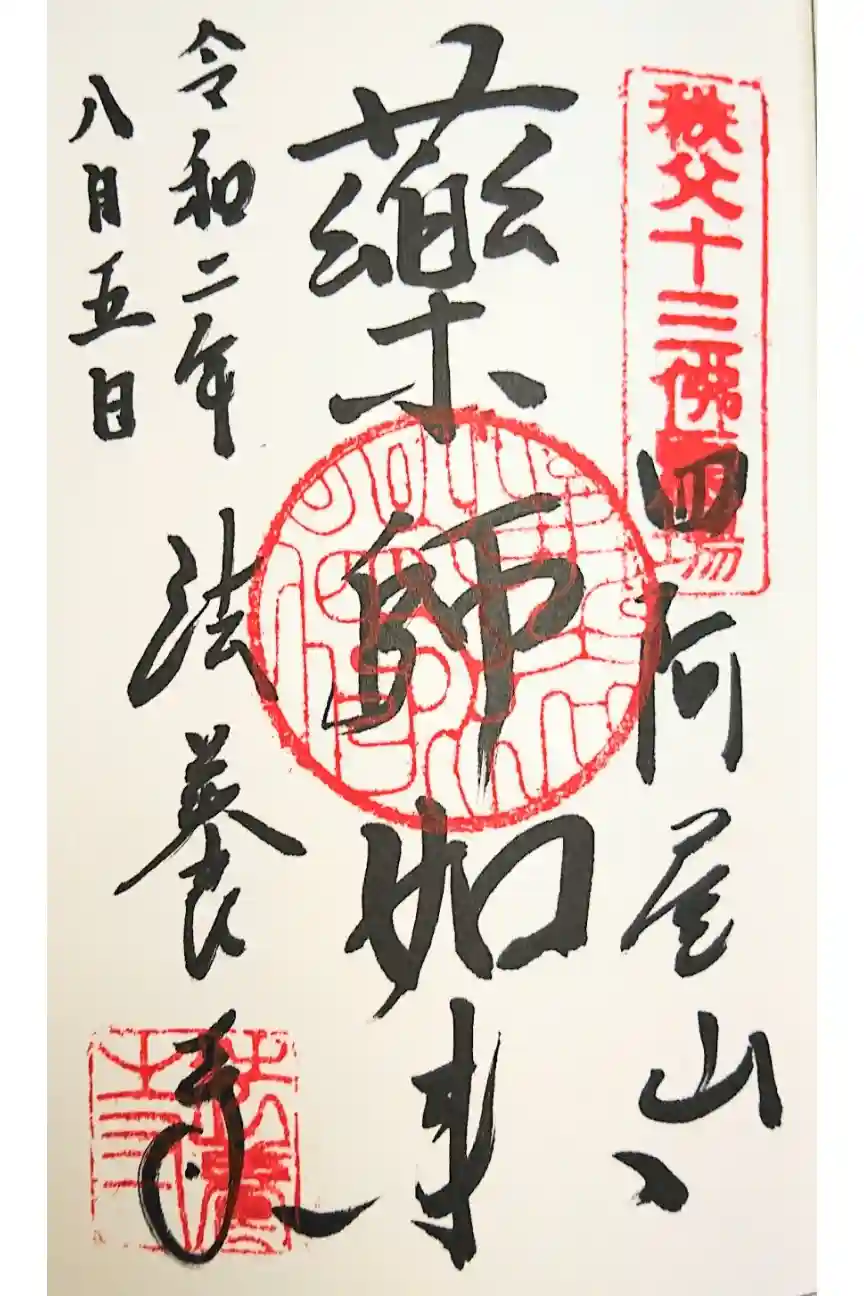 秩父十三佛霊場
四阿屋山
薬師如来
令和二年
八月五日
法養寺